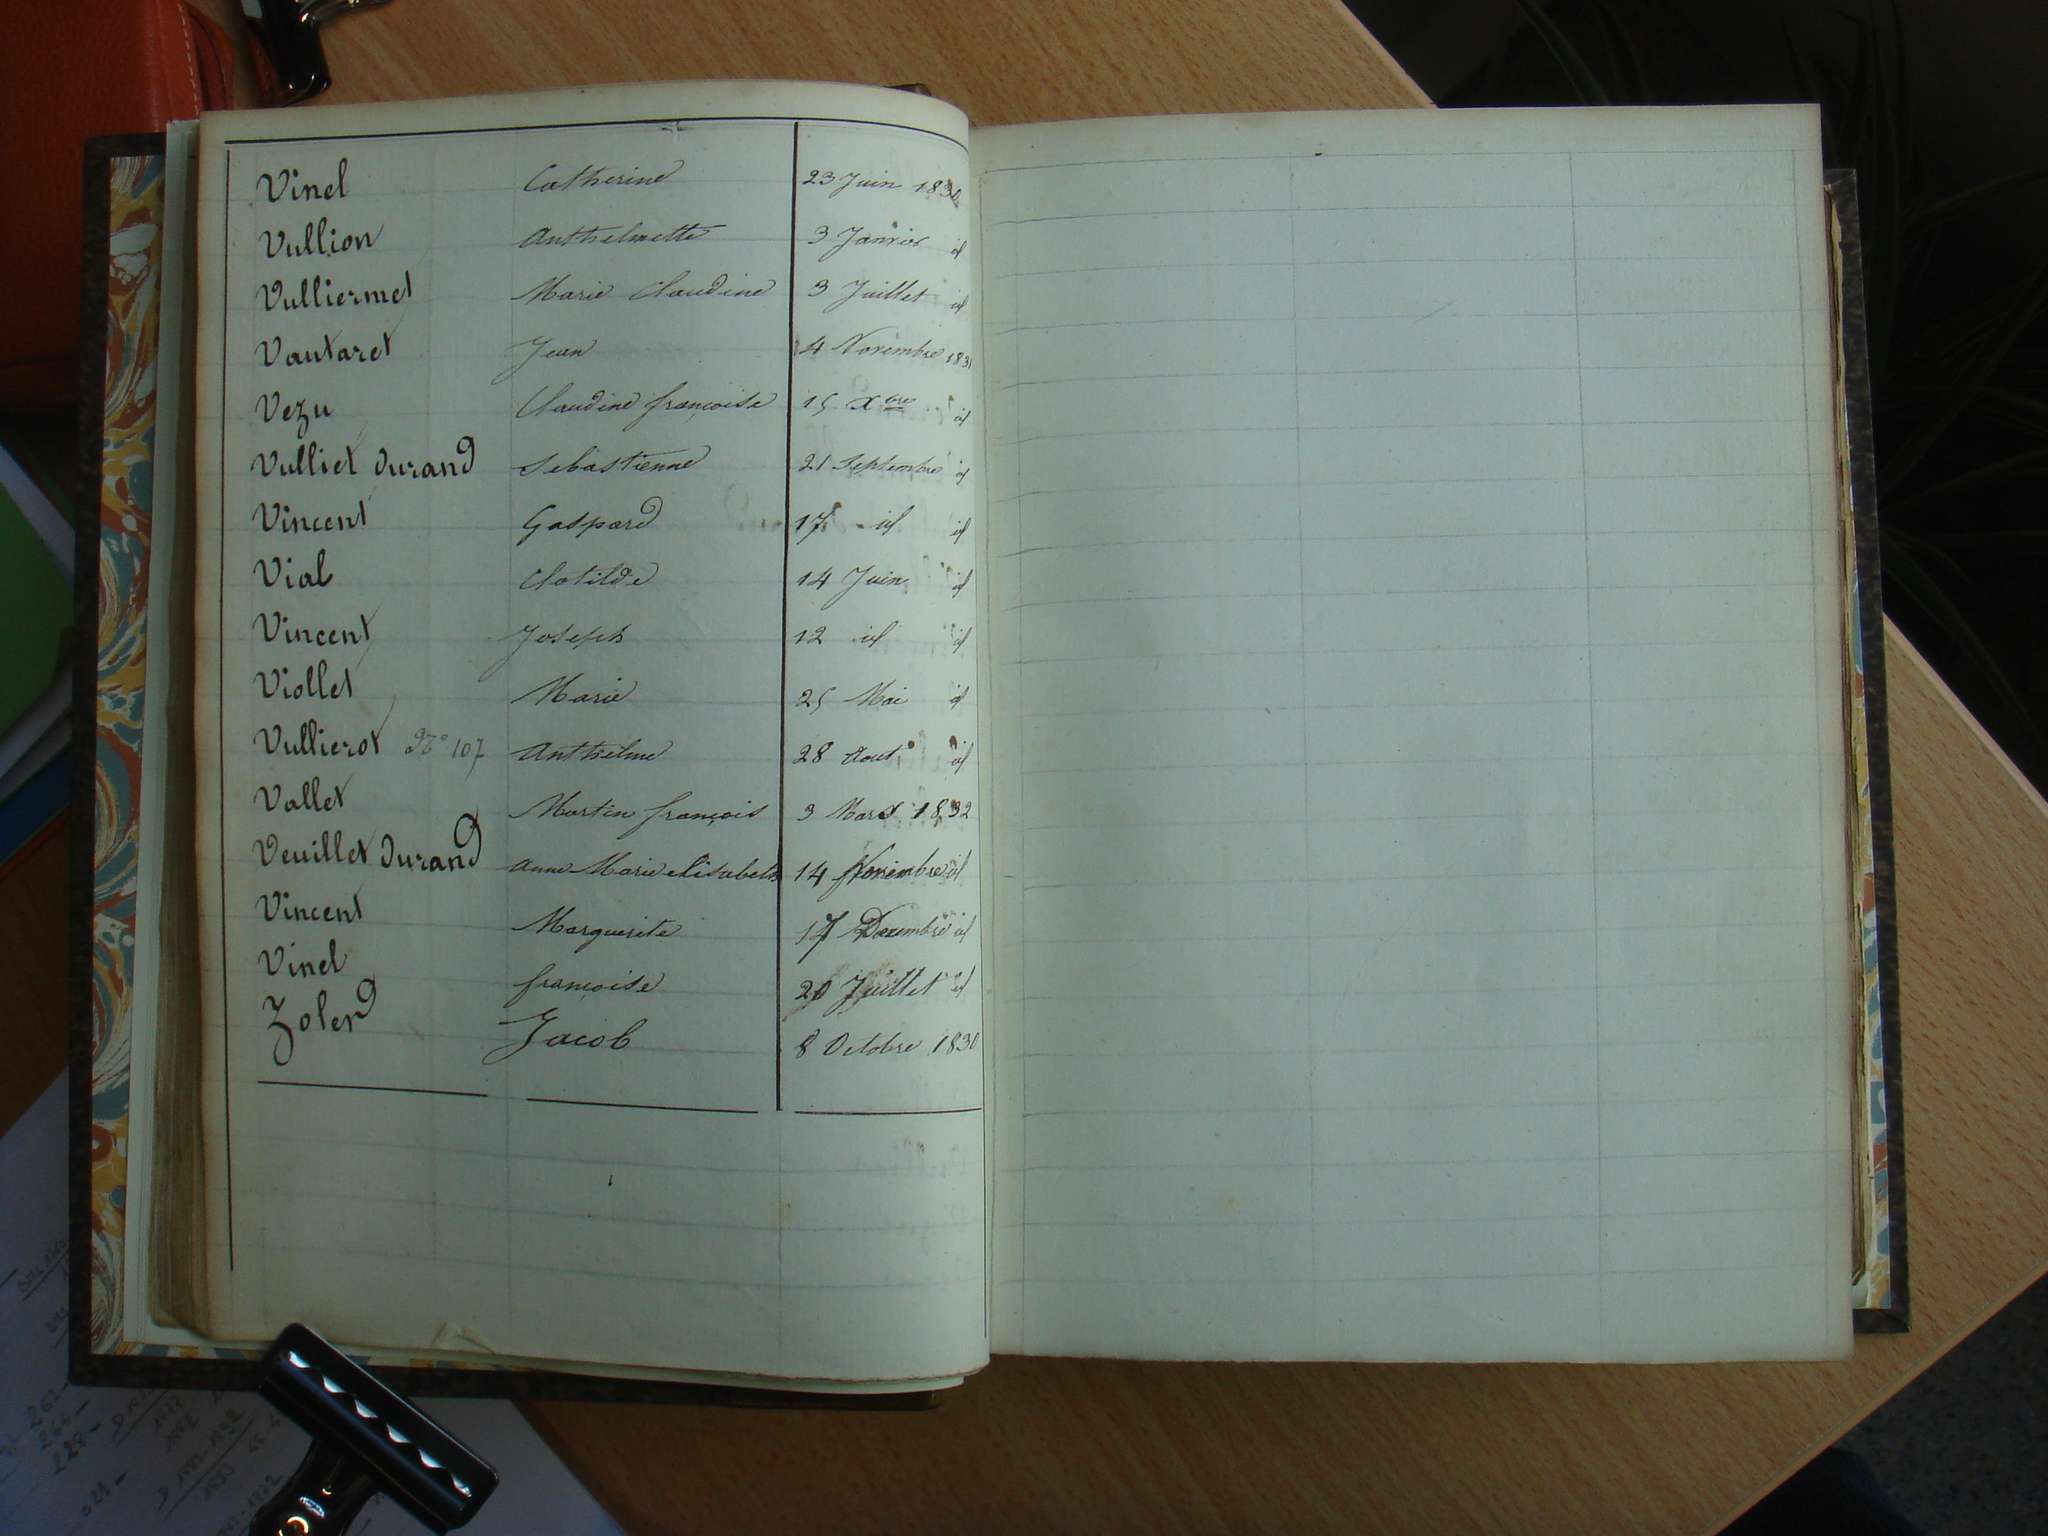 Vinel Catherine 23 Juin 1830
Vullion Anthelmette 3 Janvier id
Vulliermet Marie Claudine 3 Juillet id
Vautaret Jean 4 Novembre 1831
Vezu Claudine françoise 15 Xbre id
Vulliet Durand Sebastienne 21 Septembre id
Vincent Gaspard 17 id id
Vial Clotilde 14 Juin id
Vincent Joseph 12 id id
Viollet Marie 25 Mai id
Vullierot N° 107 Anthelme 28 Aout id
Vallet Martin françois 3 Mars 1832
Veuillet Durand Anne Marie elisabeth 14 Novembre id
Vincent Marguerite 17 Decembre id
Vinel françoise 20 Juillet id
Zolend Jacob 8 Octobre 1830
262-
266-
228-